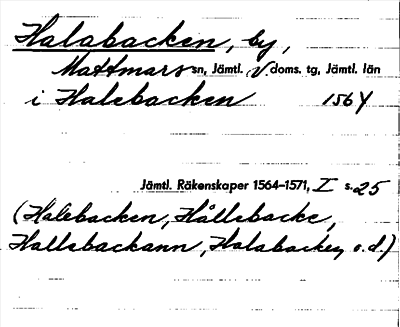 Halabacken, by,
Mattmars sn, Jämtl. V. doms. tg, Jämtl. län
i Halebacken 1564
Jämtl. Räkenskaper 1564–1571, I s. 25
(Halebacken, Hållebacke,
Hallabackann, Halabacke, o.d.)